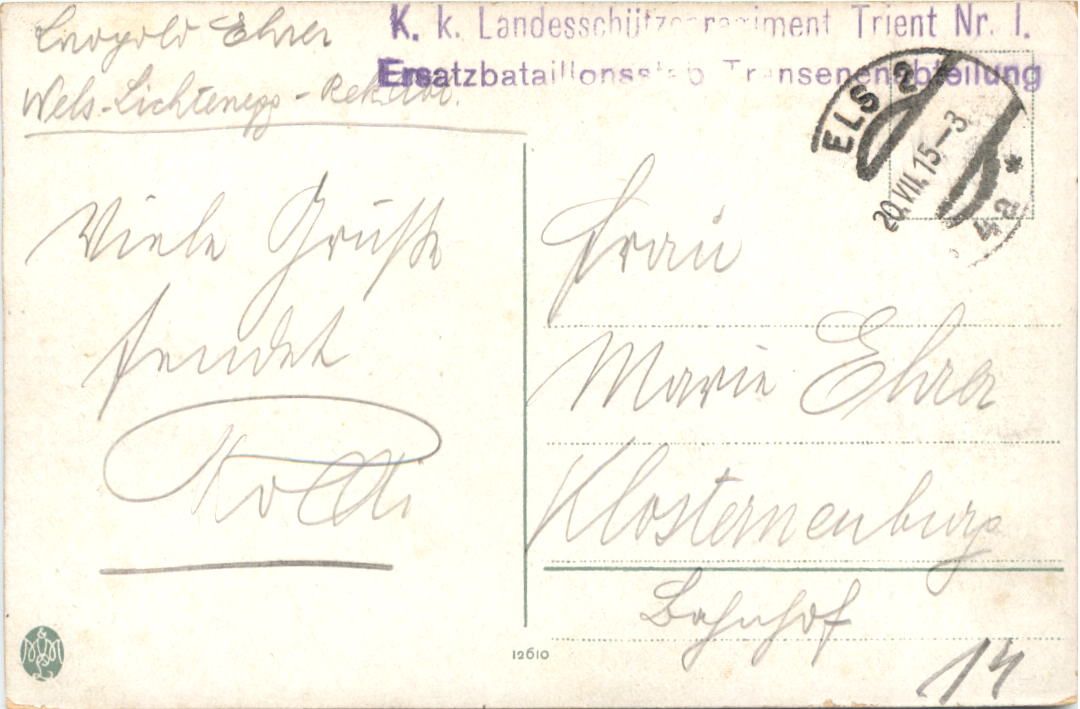 Leopold Ehrer
Wels-Lichtenegg-
K. k. Landesschützenregiment Trient Nr. I.
Ersatzbataillonsstab Transenenabteilung
ELS 2
20.VII.15-3
* 4a
Viele Grüße
sendet
Frau
Marie Ehrer
Klosterneuburg
Bahnhof
12610
14